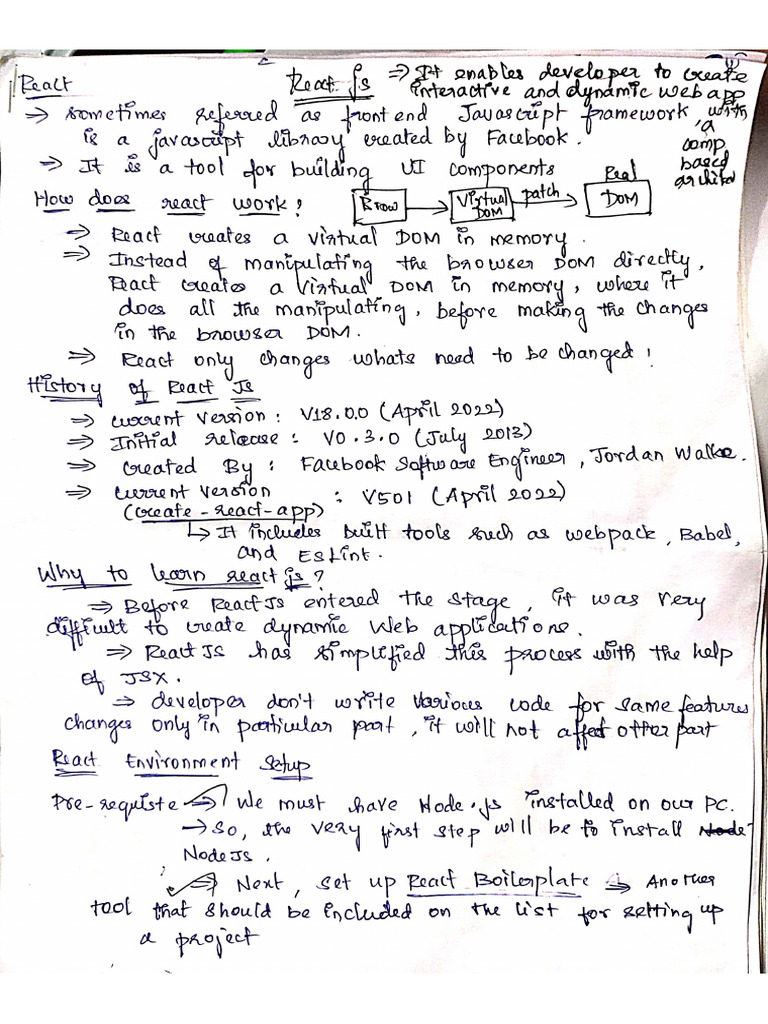 React
React Js ⇒ It enables developer to create
interactive and dynamic web app
, with a comp based archited
⇒ sometimes referred as front end Javascript framework
is a javascript library created by Facebook.
⇒ It is a tool for building UI components
How does react work?
Brow → Virtual DOM patch → Real DOM
⇒ React creates a virtual DOM in memory.
⇒ Instead of manipulating the browser DOM directly,
React creates a virtual DOM in memory, where it
does all the manipulating, before making the changes
in the browser DOM.
⇒ React only changes whats need to be changed!
History of React Js
⇒ current version: V18.0.0 (April 2022)
⇒ Initial release: V0.3.0 (July 2013)
⇒ created By: Facebook Software Engineer, Jordan Walke.
⇒ current version : V501 (April 2022)
(create-react-app)
↳ It includes built tools such as webpack, Babel,
and ESlint.
Why to learn react js?
⇒ Before ReactJs entered the stage, it was very
difficult to create dynamic Web applications.
⇒ React JS has simplified this process with the help
of JSX.
⇒ developer don't write various code for same features
changes only in particular part, it will not affect otter part
React Environment Setup
Pre-requiste ⇒ We must have Node.js installed on our PC.
→ So, the very first step will be to install Node
NodeJs.
⇒ Next, set up React Boilerplate ⇒ Another
tool that should be included on the list for setting up
a project